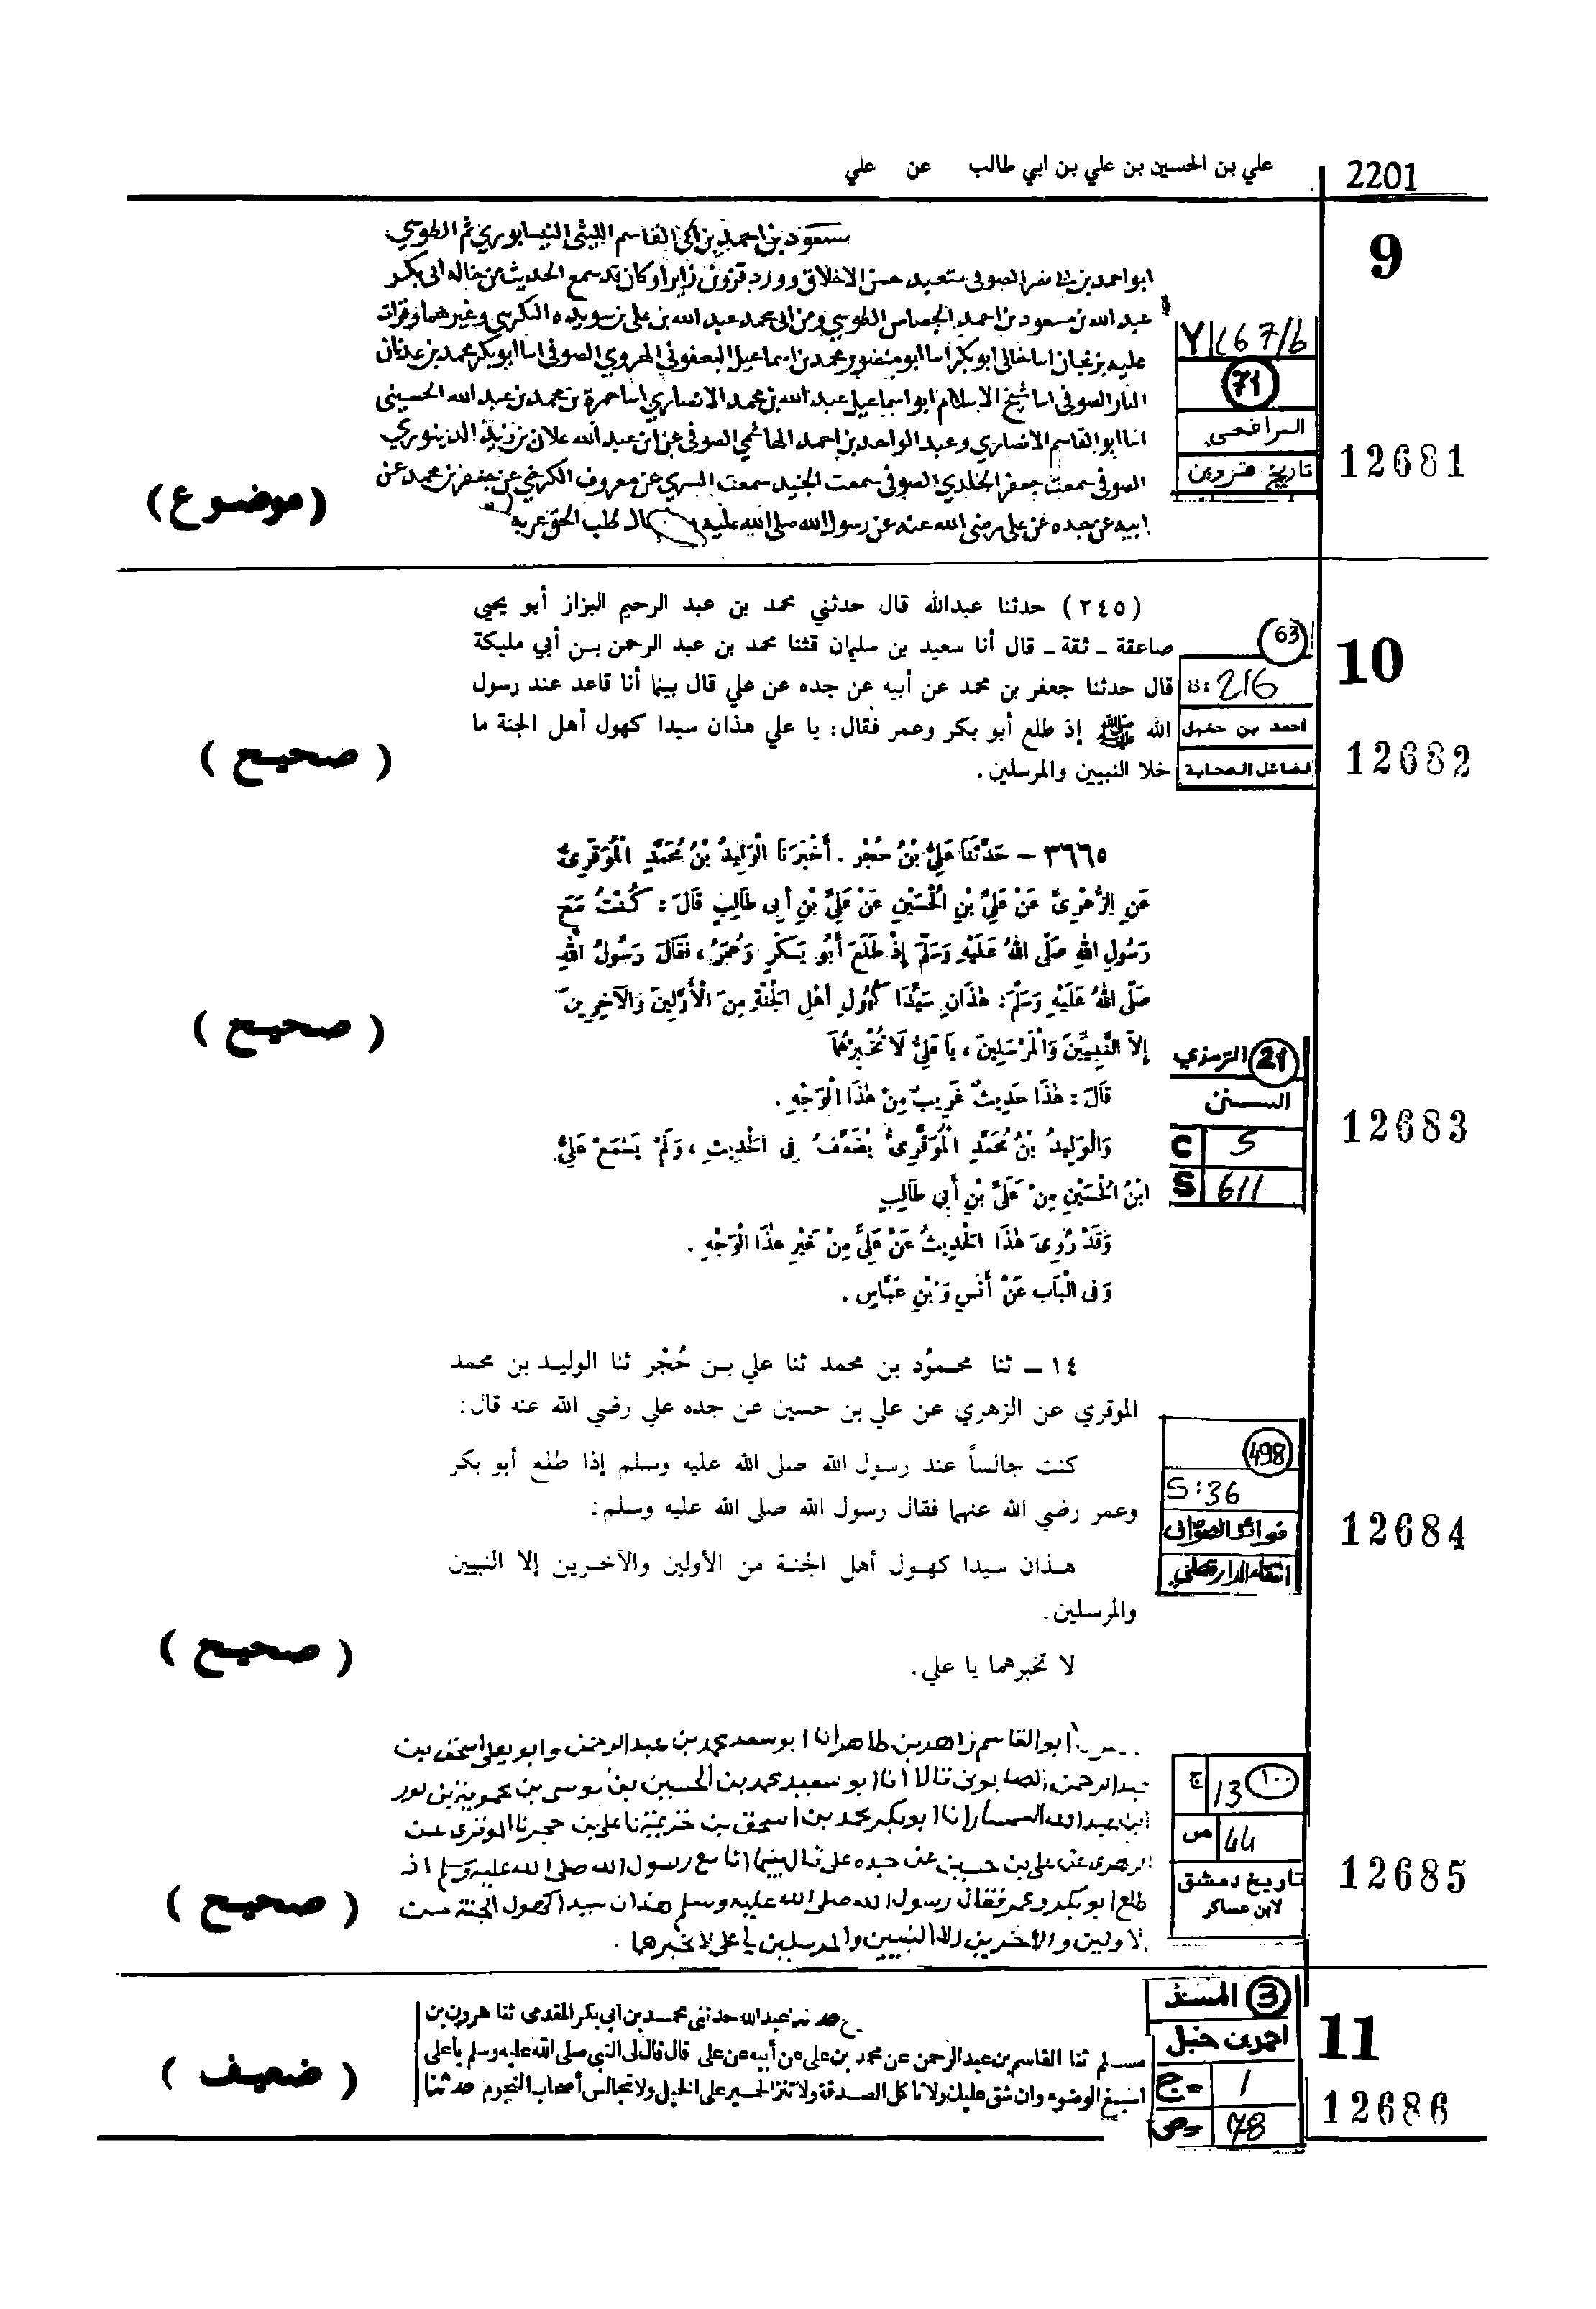 2201
علي بن الحسين بن علي بن ابي طالب عن علي
9
مسعود بن احمد بن ابي القاسم الليثي النيسابوري ثم الطوسي
ابو احمد بن ابي نصر الصوفي متعبد حسن الاخلاق وورد قزوين زايرا وكان قد سمع الحديث من خاله ابي بكر
عبد الله بن مسعود بن احمد الجصاص الطوسي ومن ابي محمد عبد الله بن علي بن سويده التكريتي وغيرهما وقرات
عليه بزنجان انا خالي ابو بكر انا ابو منصور محمد بن اسماعيل اليعقوبي الهروي الصوفي انا ابو بكر محمد بن عدنان
الصوفي انا شيخ الاسلام ابو اسماعيل عبد الله بن محمد الانصاري انا حمزة بن محمد بن عبد الله الحسيني
انا ابو القاسم الانصاري وعبد الواحد بن احمد الهاشمي الصوفي عن ابن عبد الله علان بن زيد الدينوري
الصوفي سمعت جعفر الخلدي الصوفي سمعت الجنيد سمعت السري عن معروف الكرخي عن جعفر بن محمد عن
ابيه عن جده عن علي رضي الله عنه عن رسول الله صلى الله عليه قال طلب الحق غربة
71
الرافعي
تاريخ قزوين
12681
(موضوع)
10
(٢٤٥) حدثنا عبدالله قال حدثني محمد بن عبد الرحيم البزاز أبو يحيى
صاعقة ـ ثقة ـ قال أنا سعيد بن سليمان قثنا محمد بن عبد الرحمن بن أبي مليكة
قال حدثنا جعفر بن محمد عن أبيه عن جده عن علي قال بينما أنا قاعد عند رسول
الله ﷺ إذ طلع أبو بكر وعمر فقال: يا علي هذان سيدا كهول أهل الجنة ما
خلا النبيين والمرسلين.
63
216
احمد بن حنبل
فضائل الصحابة
12682
(صحيح)
٣٦٦٥ – حَدَّثَنَا عَلِيُّ بْنُ حُجْرٍ . أَخْبَرَنَا الْوَلِيدُ بْنُ مُحَمَّدٍ الْمُوَقَّرِيُّ
عَنِ الزُّهْرِيِّ عَنْ عَلِيِّ بْنِ الْحُسَيْنِ عَنْ عَلِيِّ بْنِ أَبِي طَالِبٍ قَالَ : كُنْتُ مَعَ
رَسُولِ اللهِ صَلَّى اللهُ عَلَيْهِ وَسَلَّمَ إِذْ طَلَعَ أَبُو بَكْرٍ وَعُمَرُ ، فَقَالَ رَسُولُ اللهِ
صَلَّى اللهُ عَلَيْهِ وَسَلَّمَ : هٰذَانِ سَيِّدَا كُهُولِ أَهْلِ الْجَنَّةِ مِنَ الْأَوَّلِينَ وَالْآخِرِينَ
إِلَّا النَّبِيِّينَ وَالْمُرْسَلِينَ ، يَا عَلِيُّ لَا تُخْبِرْهُمَا
قَالَ : هٰذَا حَدِيثٌ غَرِيبٌ مِنْ هٰذَا الْوَجْهِ .
وَالْوَلِيدُ بْنُ مُحَمَّدٍ الْمُوَقَّرِيُّ يُضَعَّفُ فِي الْحَدِيثِ ، وَلَمْ يَسْمَعْ عَلِيُّ
ابْنُ الْحُسَيْنِ مِنْ عَلِيِّ بْنِ أَبِي طَالِبٍ
وَقَدْ رُوِيَ هٰذَا الْحَدِيثُ عَنْ عَلِيٍّ مِنْ غَيْرِ هٰذَا الْوَجْهِ .
وَفِي الْبَابِ عَنْ أَنَسٍ وَابْنِ عَبَّاسٍ .
21 الترمذي
السنن
C 5
S 611
12683
(صحيح)
١٤ ـ ثنا محمود بن محمد ثنا علي بن حُجْر ثنا الوليد بن محمد
الموقري عن الزهري عن علي بن حسين عن جده علي رضي الله عنه قال:
كنت جالساً عند رسول الله صلى الله عليه وسلم إذا طلع أبو بكر
وعمر رضي الله عنهما فقال رسول الله صلى الله عليه وسلم:
هذان سيدا كهول أهل الجنة من الأولين والآخرين إلا النبيين
والمرسلين.
لا تخبرهما يا علي.
498
S:36
فوائد الصواف
انتقاء الدارقطني
12684
(صحيح)
ابو القاسم زاهر بن طاهر انا ابو سعد محمد بن عبد الرحمن وابو يعلى اسحق بن
عبد الرحمن الصابوني قالا انا ابو سعيد محمد بن الحسين بن موسى بن محمويه بن ثور
ابن عبد الله السمسار انا ابو بكر محمد بن اسحق بن خزيمة نا علي بن حجر نا الموقري عن
الزهري عن علي بن حسين عن جده علي قال بينما انا مع رسول الله صلى الله عليه وسلم اذ
طلع ابو بكر وعمر فقال رسول الله صلى الله عليه وسلم هذان سيدا كهول الجنة من
الاولين والآخرين الا النبيين والمرسلين يا علي لا تخبرهما .
١٠٠
ج 13
ص 44
تاريخ دمشق
لابن عساكر
12685
(صحيح)
11
حدثنا عبدالله حدثني محمد بن أبي بكر المقدمي ثنا هرون بن
مسلم ثنا القاسم بن عبد الرحمن عن محمد بن علي عن أبيه عن علي قال قال لي النبي صلى الله عليه وسلم يا علي
أسبغ الوضوء وان شق عليك ولا تأكل الصدقة ولا تنز الحمير على الخيل ولا تجالس أصحاب النجوم حدثنا
3 المسند
احمد بن حنبل
ج= 1
ص= 78
12686
(ضعيف)